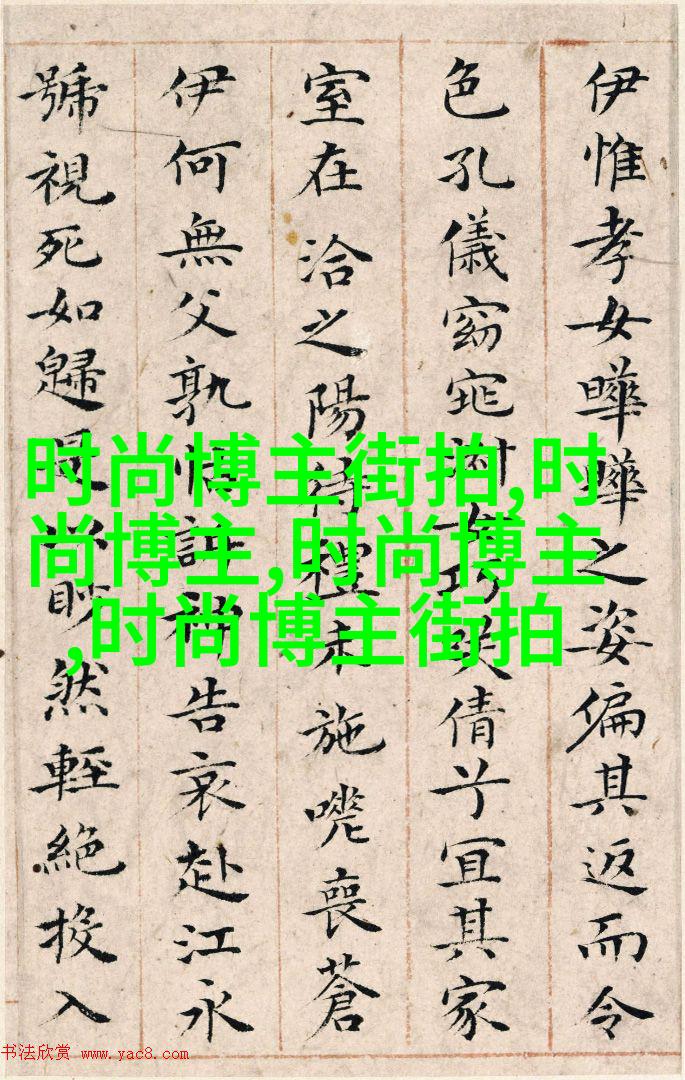 伊惟孝女曄曄之姿偏其返而令
色孔儀窈窕淑女巧笑倩兮宜其家
室在洽之陽待禮未施嗟喪蒼
伊何無父孰怙訴神告哀赴江永
號視死如歸是以眇然輕絕投入
时尚博主街拍,时
尚博主,时尚博主
,时尚博主街拍
书法欣赏 www.yac8.com